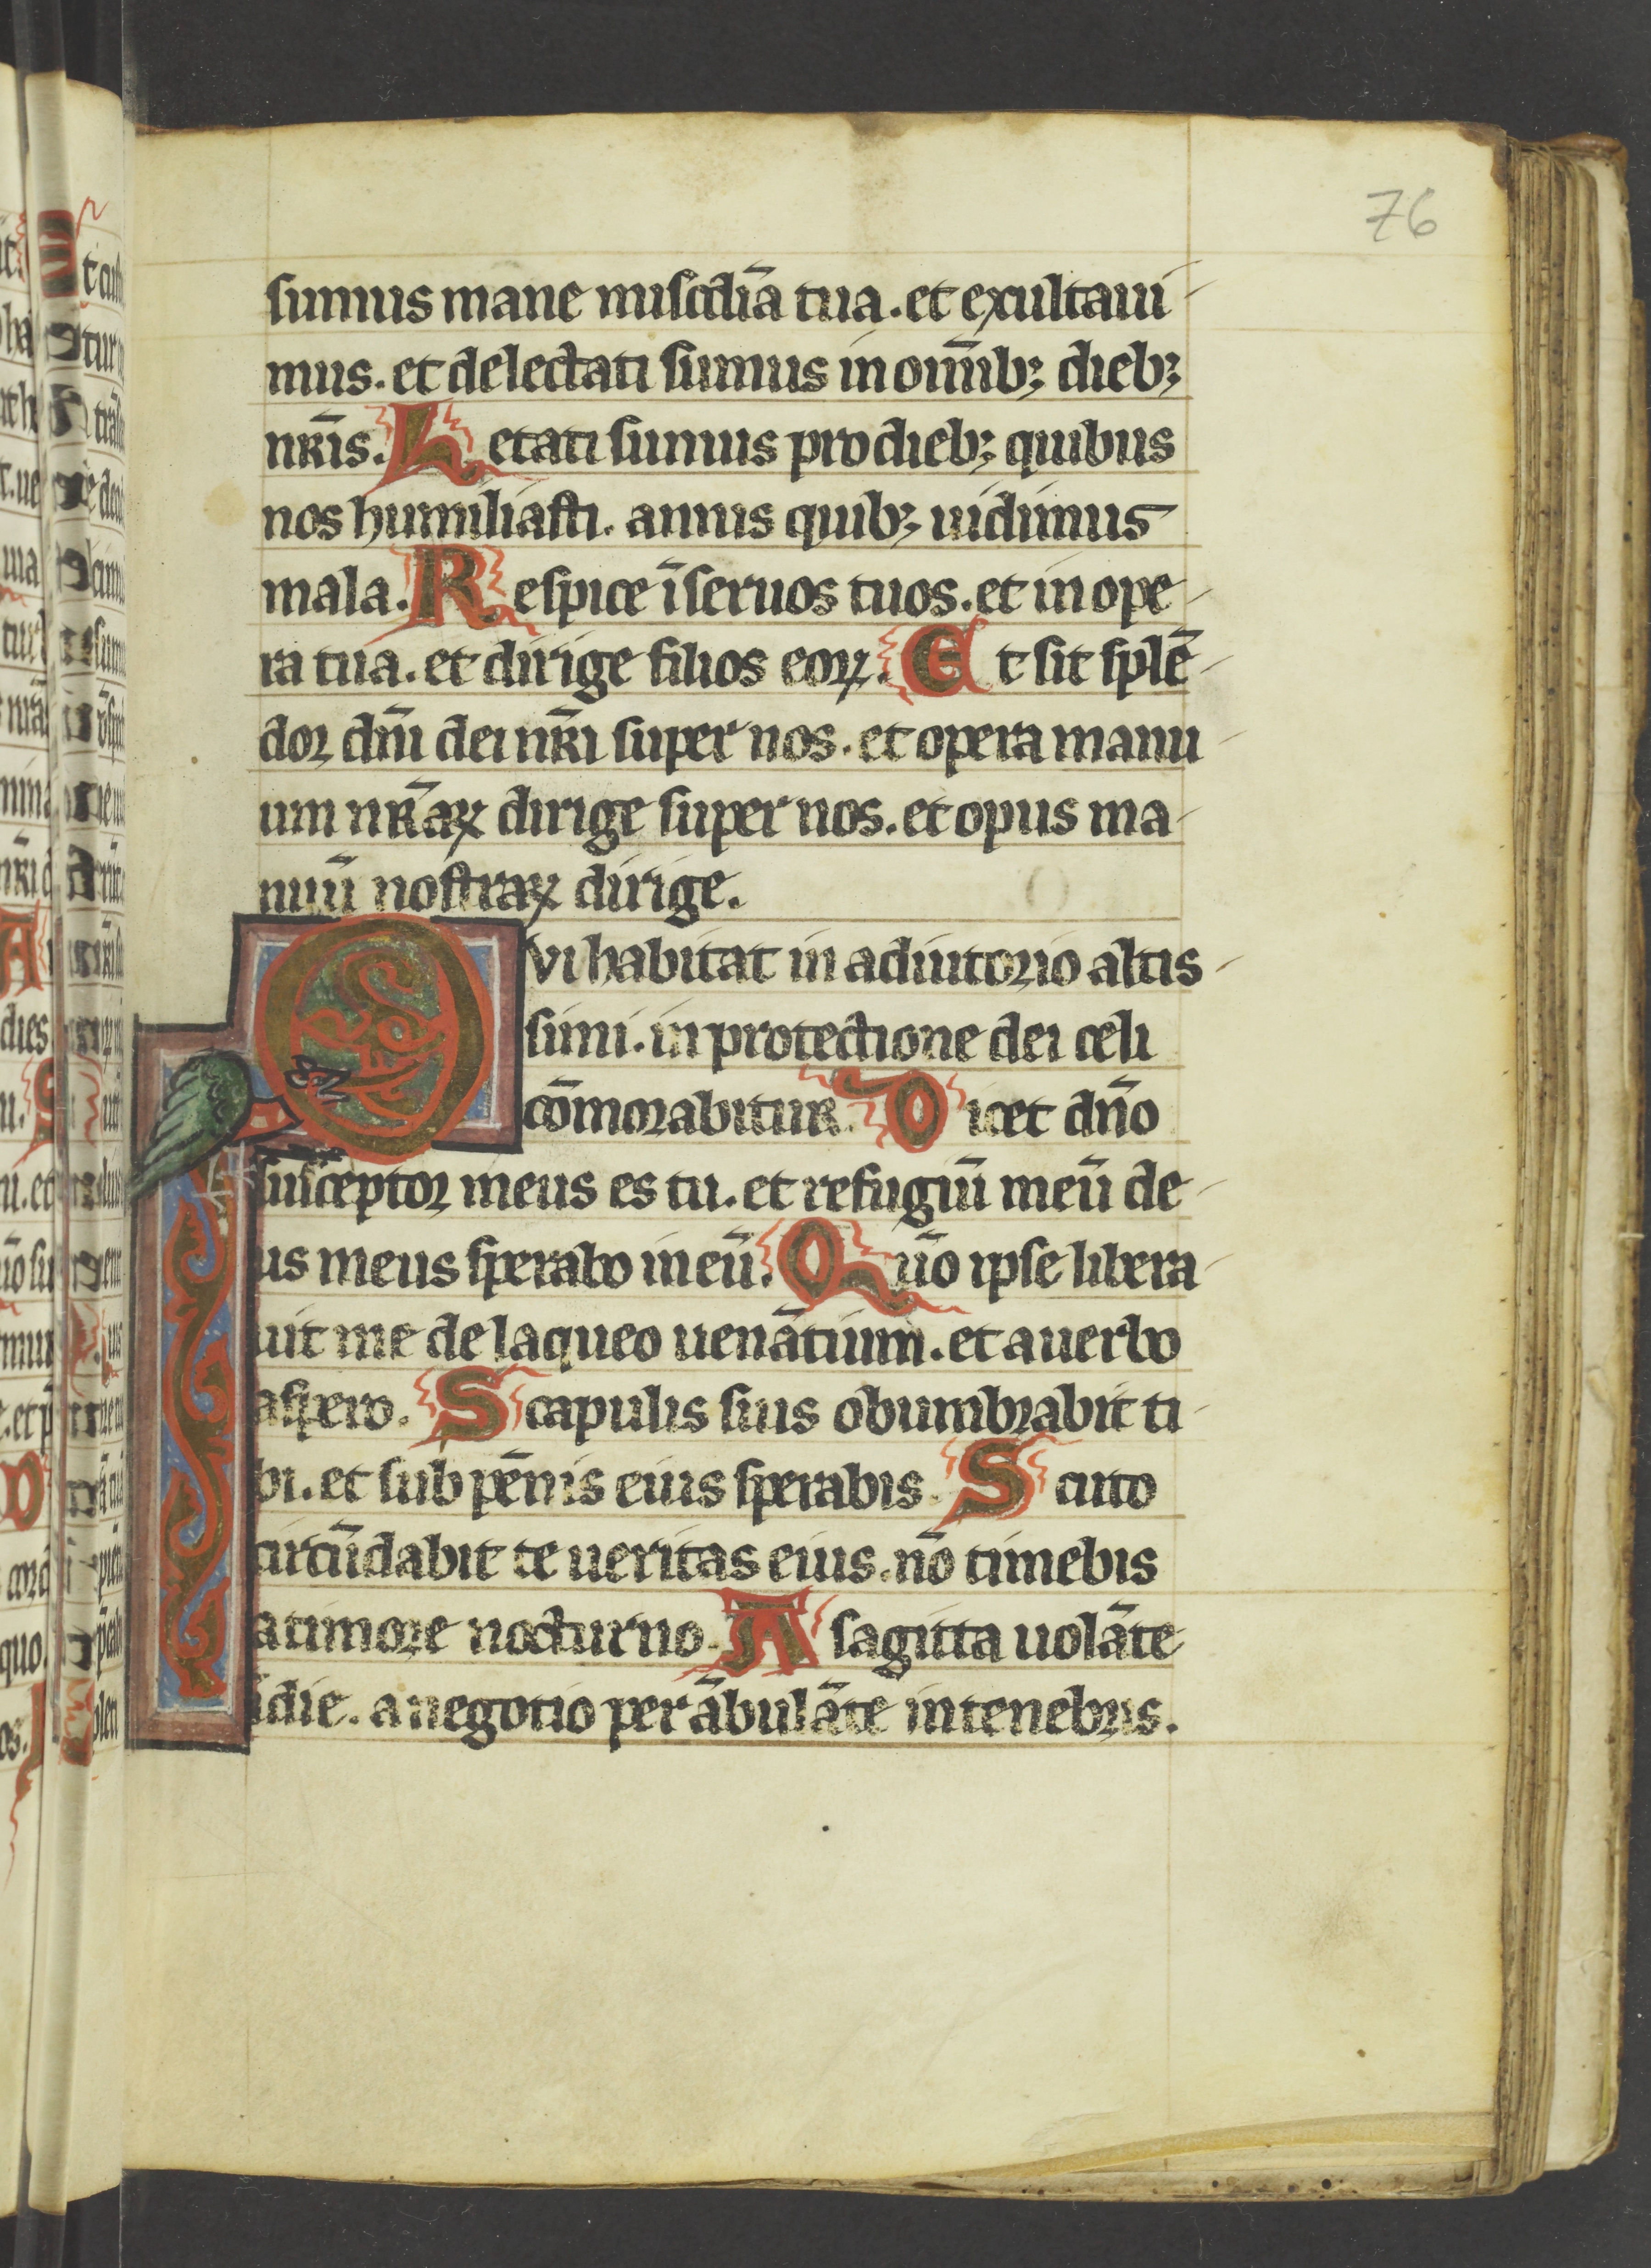 76
sumus mane miscdīa tua. et exultaui
mus. et delectati sumus in om̄ib; dieb;
nr̄is. Letati sumus pro dieb; quibus
nos humiliasti. annis quib; uidimus
mala. Respice ī seruos tuos. et in ope
ra tua. et dirige filios eoꝝ. Et sit splē
dor dn̄i dei nr̄i super nos. et opera manu
um nr̄aꝝ dirige super nos. et opus ma
nuū nostraꝝ dirige.
QVi habitat in adiutorio altis
simi. in protectione dei celi
cōmorabitur. Dicet dn̄o
susceptor meus es tu. et refugiū meū de
us meus sperabo in eū. Qūo ipse libera
uit me de laqueo uenātium. et a uerbo
aspero. Scapulis suis obumbrabit ti
bi. et sub pēnis eius sperabis. Scuto
circūdabit te ueritas eius. nō timebis
a timore nocturno. A sagitta uolāte
ī die. a negotio perābulāte in tenebris.